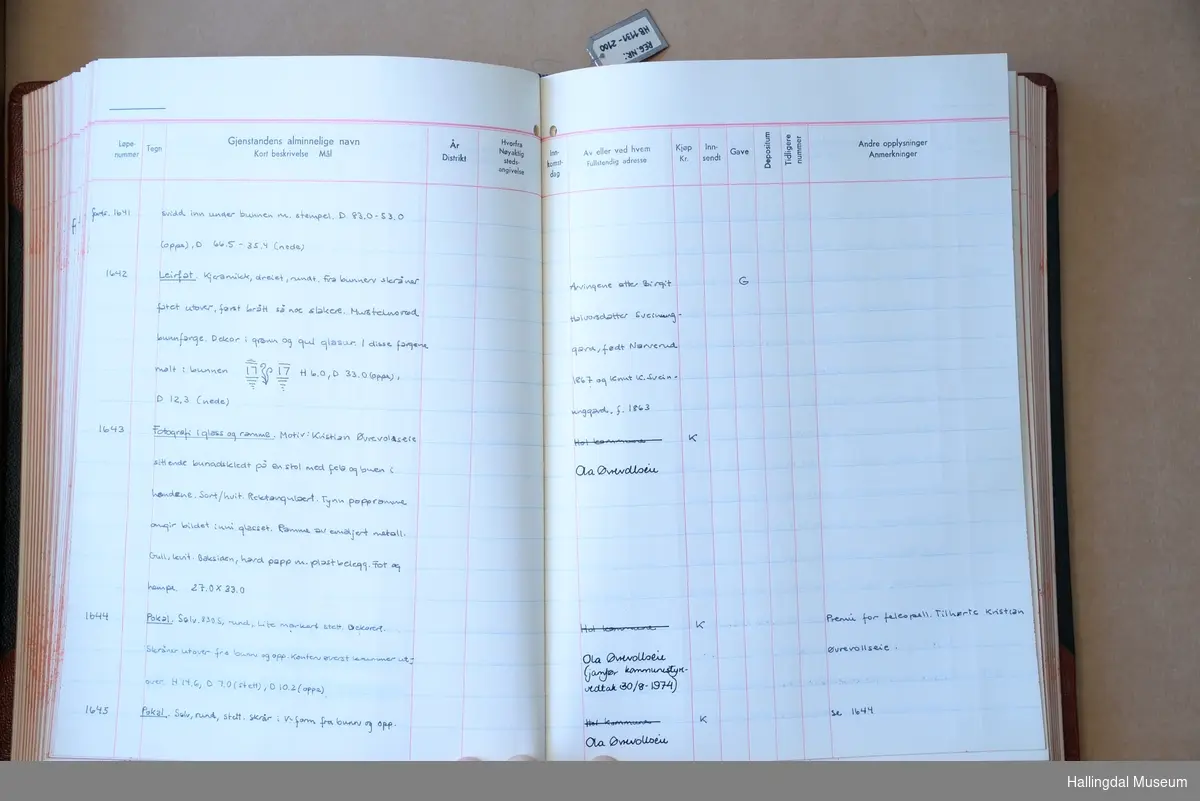 REG.NR:
HB 1131 - 2100
Løpe-
nummer
Tegn
Gjenstandens alminnelige navn
Kort beskrivelse Mål
År
Distrikt
Hvorfra
Nøyaktig
steds-
angivelse
Inn-
komst-
dag
Av eller ved hvem
Fullstendig adresse
Kjøp
Kr.
Inn-
sendt
Gave
Depositum
Tidligere
nummer
Andre opplysninger
Anmerkninger
forts. 1641 svidd inn under bunnen m. stempel. D 83.0 - 53.0
(oppe), D 66.5 - 35.4 (nede)
1642 Leirfat. Kjeramikk, dreiet, rundt. Fra bunnen skråner
fatet utover, først brått så noe slakere. Murstensrød
bunnfarge. Dekor i grønn og gul glasur. I disse fargene
malt i bunnen 17 17 H 6.0, D 33.0 (oppe),
D 12,3 (nede)
Arvingene etter Birgit
Halvorsdatter Sveinung-
gard, født Nørverud
1867 og Knut K. Svein-
unggard, f. 1863
G
1643 Fotografi i glass og ramme. Motiv: Kristian Øvrevollseie
sittende bunadskledt på en stol med fele og buen i
hendene. Sort/hvit. Rektangulært. Tynn pappramme
omgir bildet inni glasset. Ramme av emaljert metall.
Gull, hvit. Baksiden, hard papp m. plastbelegg. Fot og
hempe. 27.0 x 33.0
Hol kommune K
Ola Øvrevollseie
1644 Pokal. Sølv. 830 S, rund, lite markert stett. Dekorert.
Skråner utover fra bunn og opp. Kanten øverst krummer ut-
over. H 14,6, D 7.0 (stett), D 10.2 (oppe)
Hol kommune K
Ola Øvrevollseie
(jamfør kommunestyre-
vedtak 30/8-1974)
Premi for felespell. Tilhørte Kristian
Øvrevollseie.
1645 Pokal. Sølv, rund, stett. Skrår i V-form fra bunn og opp.
Hol kommune K
Ola Øvrevollseie
se 1644
Hallingdal Museum